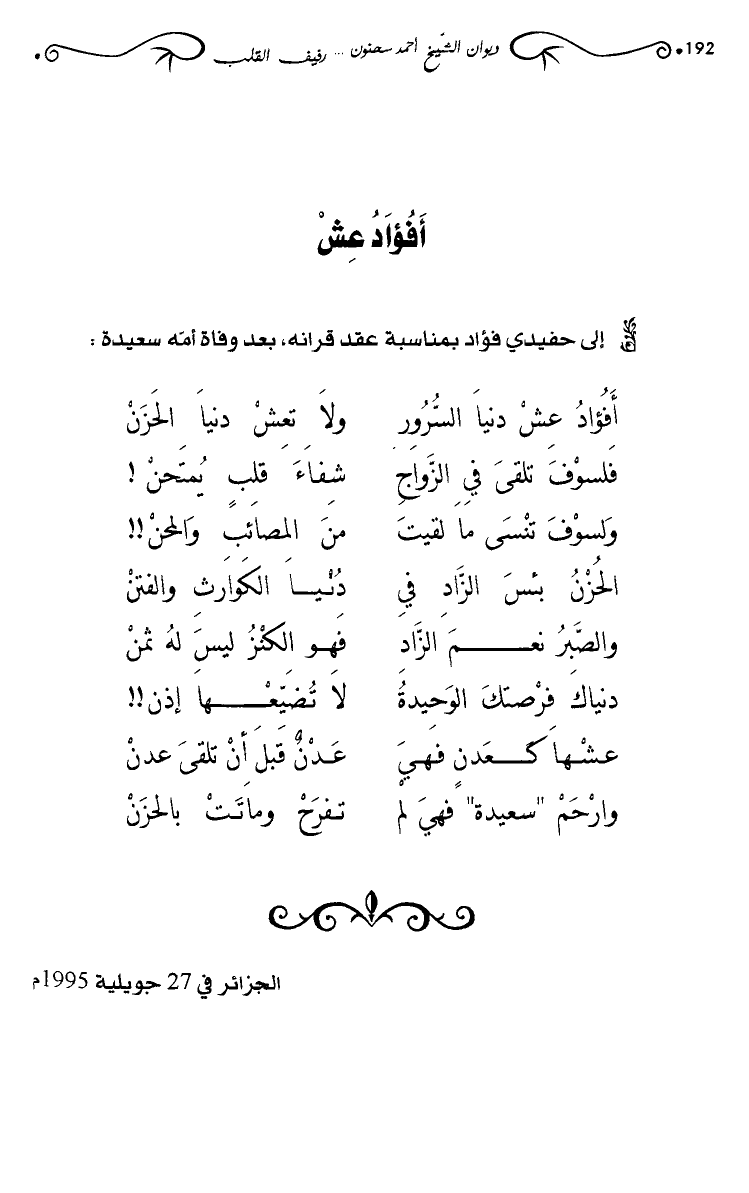 192 ديوان الشّيخ أحمد سحنون ... رفيف القلب
أَفُؤَادُ عِشْ
إلى حفيدي فؤاد بمناسبة عقد قرانه، بعد وفاة أمّه سعيدة :
أَفُؤادُ عِشْ دنياَ السُّرُورِ ولاَ تعِشْ دنياَ الحَزَنْ
فلسوْفَ تلقىَ فيِ الزَّواجِ شفاءَ قلبٍ يُمتَحنْ !
وَلسوْفَ تنْسَى ماَ لقيتَ منَ المصائبِ وَالمحنْ!!
الحُزْنُ بئسَ الزَّادِ فيِ دُنْيـــاَ الكوارثِ والفتنْ
والصَّبرُ نعـــــــمَ الزَّادِ فهو الكنْزُ ليسَ لهُ ثمنْ
دنياكَ فرْصتكَ الوَحيدةُ لاَ تُضيّعْـــــــها إذن!!
عشْها كـــعَدنٍ فهيَ عَدْنٌ قبلَ أنْ تلقىَ عدنْ
وارْحَمْ "سعيدة" فهيَ لمْ تفرَحْ وماتَتْ بالحَزَنْ
الجزائر في 27 جويلية 1995م